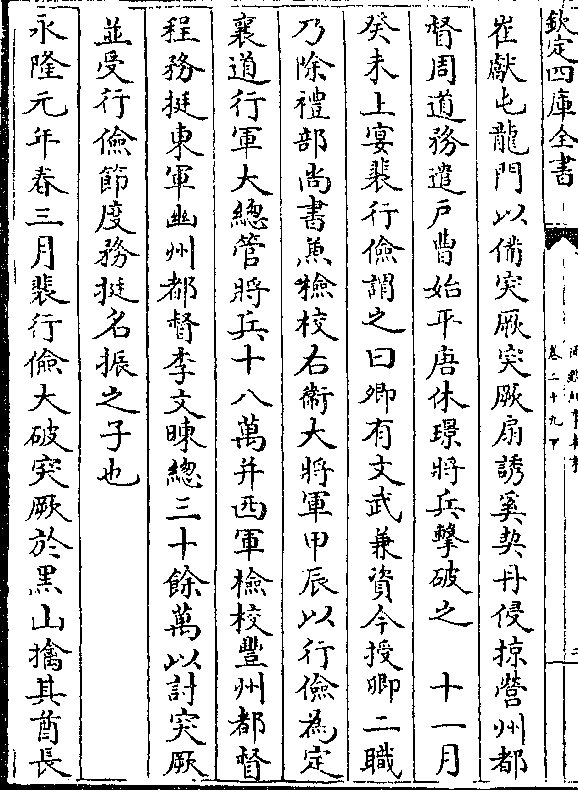 欽定四庫全書
卷二十九
崔獻屯龍門以備突厥突厥扇誘奚契丹侵掠營州都
督周道務遣戶曹始平唐休璟將兵擊破之　十一月
癸未上宴裴行儉謂之曰卿有文武兼資今授卿二職
乃除禮部尚書兼檢校右衞大將軍甲辰以行儉為定
襄道行軍大總管將兵十八萬并西軍檢校豐州都督
程務挺東軍幽州都督李文暕總三十餘萬以討突厥
並受行儉節度務挺名振之子也
永隆元年春三月裴行儉大破突厥於黑山擒其酋長